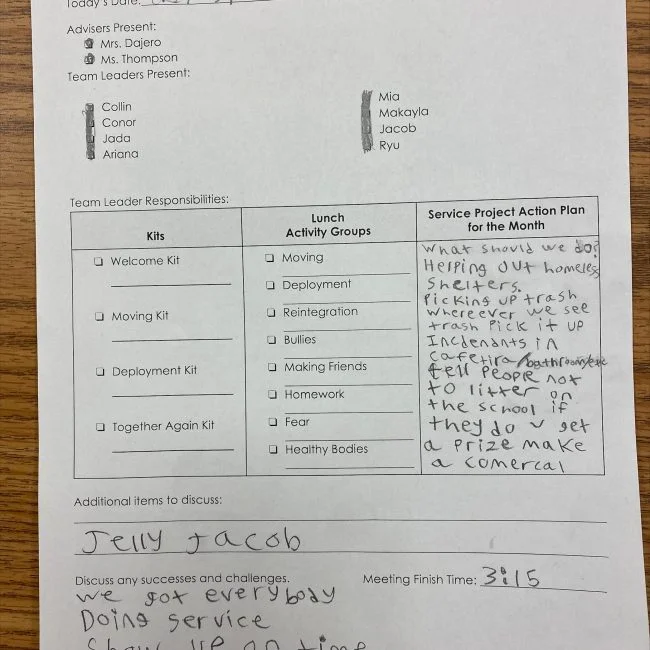 Today's Date:
Advisers Present:
Mrs. Dajero
Ms. Thompson
Team Leaders Present:
Collin
Conor
Jada
Ariana
Mia
Makayla
Jacob
Ryu
Team Leader Responsibilities:
Kits
Welcome Kit
Moving Kit
Deployment Kit
Together Again Kit
Lunch
Activity Groups
Moving
Deployment
Reintegration
Bullies
Making Friends
Homework
Fear
Healthy Bodies
Service Project Action Plan
for the Month
What should we do?
Helping out homeless
Shelters.
Picking up trash
whereever we see
trash Pick it up
Incdenants in
cafetira/bathroom/etc
tell people not
to litter on
the school if
they do u get
a prize make
a comercal
Additional items to discuss:
Jelly Jacob
Discuss any successes and challenges.
Meeting Finish Time: 3:15
we got everybody
Doing service
Show up on time